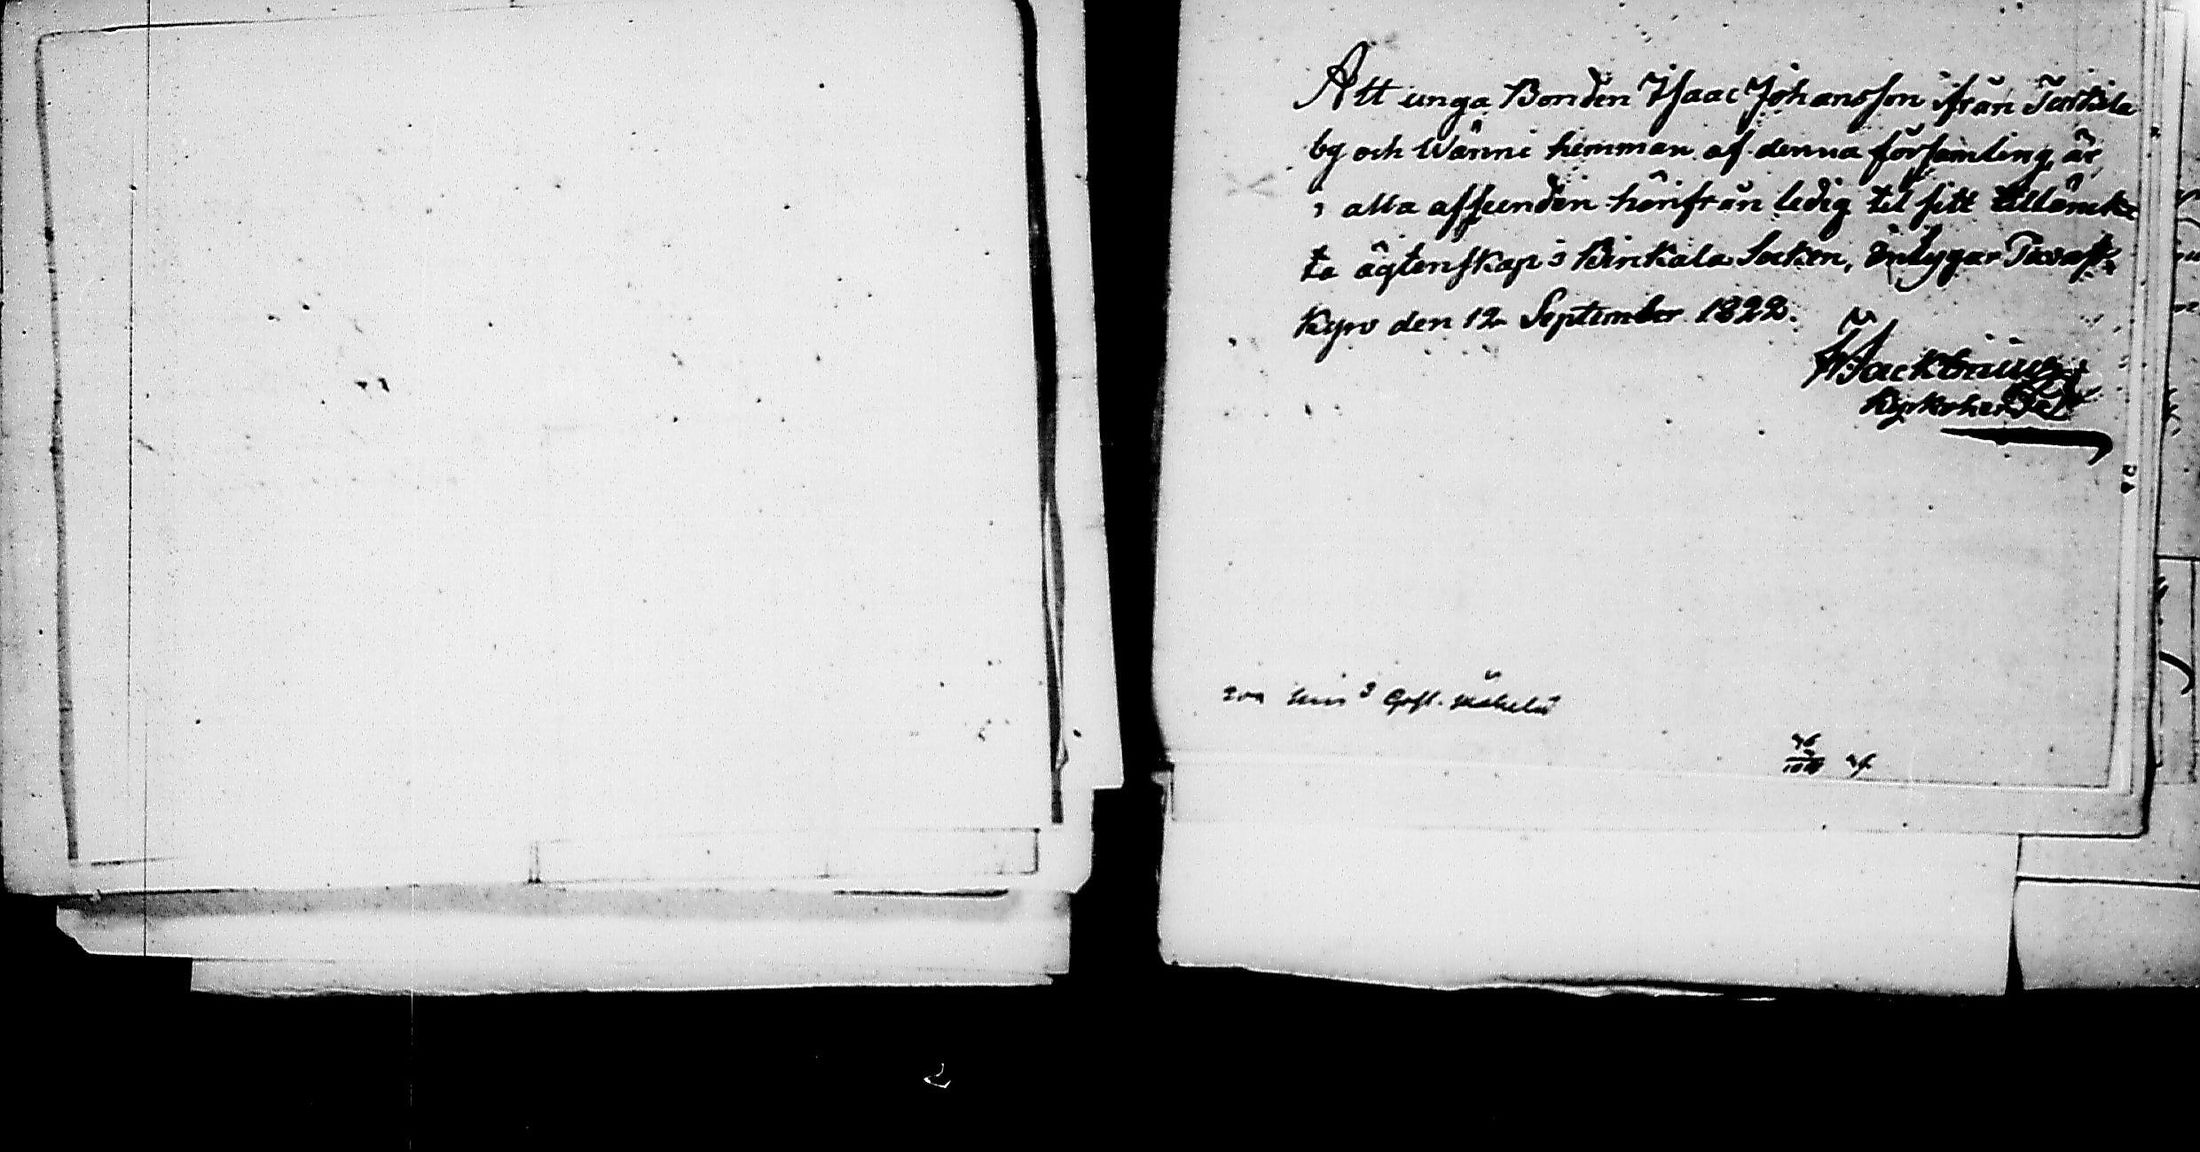 Att unga Bonden Isaac Johansson ifrån Tarkila
by och Wänni hemman af denna församling är
i alla afseenden härifrån ledig til sitt tillärnka
te ägtenskap i Birkala Socken, intygar Tavast
Kyro den 12 September 1822.
Kyrkoherde